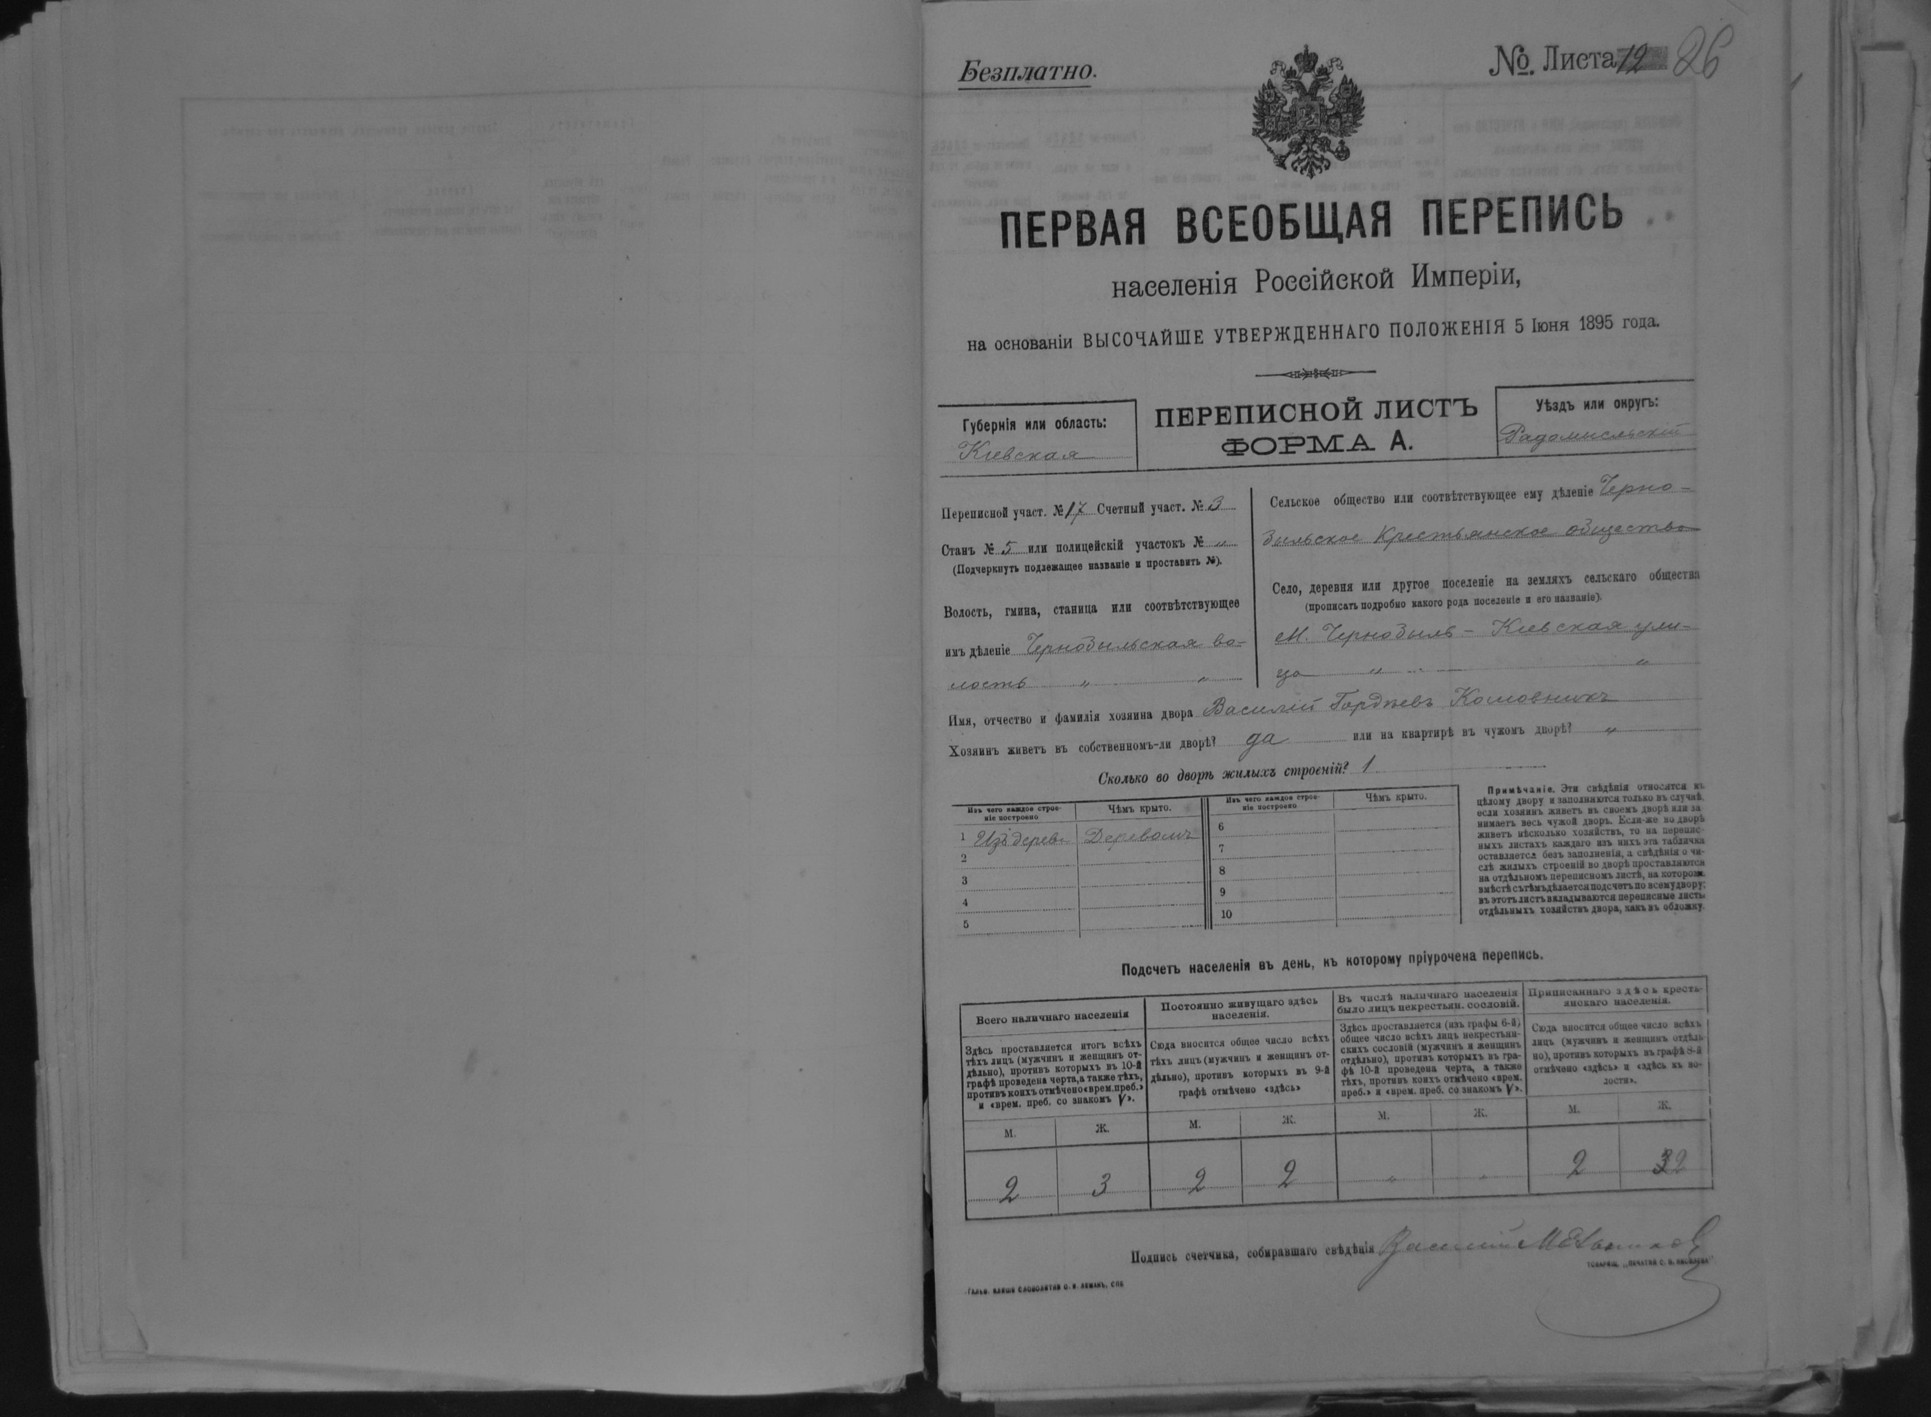 Безплатно.
№ Листа 12 26
ПЕРВАЯ ВСЕОБЩАЯ ПЕРЕПИСЬ
населенія Россійской Имперіи,
на основаніи ВЫСОЧАЙШЕ УТВЕРЖДЕННАГО ПОЛОЖЕНІЯ 5 Іюня 1895 года.
Губернія или область:
Кіевская
ПЕРЕПИСНОЙ ЛИСТЪ
ФОРМА А.
Уѣздъ или округъ:
Радомысльскій
Переписной участ. № 17 Счетный участ. № 3
Станъ № 5 или полицейскій участокъ № „
(Подчеркнуть подлежащее названіе и проставить №).
Волость, гмина, станица или соотвѣтствующее
имъ дѣленіе Чернобыльская во-
лость „ „
Сельское общество или соотвѣтствующее ему дѣленіе Черно-
быльское Крестьянское общество
Село, деревня или другое поселеніе на земляхъ сельскаго общества
(прописать подробно какого рода поселеніе и его названіе).
М. Чернобыль – Кіевская ули-
ца „ „
Имя, отчество и фамилія хозяина двора Василій Гордѣевъ
Хозяинъ живетъ въ собственномъ-ли дворѣ? да или на квартирѣ въ чужомъ дворѣ? „
Сколько во дворѣ жилыхъ строеній? 1
Изъ чего каждое строе-
ніе построено
Чѣмъ крыто.
Изъ чего каждое строе-
ніе построено
Чѣмъ крыто.
1 Изъ дерева Деревомъ
2
3
4
5
6
7
8
9
10
Примѣчаніе. Эти свѣдѣнія относятся къ
цѣлому двору и заполняются только въ случаѣ,
если хозяинъ живетъ въ своемъ дворѣ или за-
нимаетъ весь чужой дворъ. Если-же во дворѣ
живетъ нѣсколько хозяйствъ, то на перепис-
ныхъ листахъ каждаго изъ нихъ эта табличка
оставляется безъ заполненія, а свѣдѣнія о чи-
слѣ жилыхъ строеній во дворѣ проставляются
на отдѣльномъ переписномъ листѣ, на которомъ
вмѣстѣ съ тѣмъ дѣлается подсчетъ по всему двору;
въ этотъ листъ вкладываются переписные листы
отдѣльныхъ хозяйствъ двора, какъ въ обложку.
Подсчетъ населенія въ день, къ которому пріурочена перепись.
Всего наличнаго населенія
Здѣсь проставляется итогъ всѣхъ
тѣхъ лицъ (мужчинъ и женщинъ от-
дѣльно), противъ которыхъ въ 10-й
графѣ проведена черта, а также тѣхъ,
противъ коихъ отмѣчено «врем. преб.»
и «врем. преб. со знакомъ V».
Постоянно живущаго здѣсь
населенія.
Сюда вносится общее число всѣхъ
тѣхъ лицъ (мужчинъ и женщинъ от-
дѣльно), противъ которыхъ въ 9-й
графѣ отмѣчено «здѣсь»
Въ числѣ наличнаго населенія
было лицъ некрестьян. сословій.
Здѣсь проставляется (изъ графы 6-й)
общее число всѣхъ лицъ некрестьян-
скихъ сословій (мужчинъ и женщинъ
отдѣльно), противъ которыхъ въ гра-
фѣ 10-й проведена черта, а также
тѣхъ, противъ коихъ отмѣчено «врем.
преб.» и «врем. преб. со знакомъ V».
Приписаннаго здѣсь кресть-
янскаго населенія.
Сюда вносится общее число всѣхъ
лицъ (мужчинъ и женщинъ отдѣль-
но), противъ которыхъ въ графѣ 8-й
отмѣчено «здѣсь» и «здѣсь въ во-
лости».
М. Ж. М. Ж. М. Ж. М. Ж.
2 3 2 2 „ „ 2 2
Подпись счетчика, собиравшаго свѣдѣнія Василій Мельников